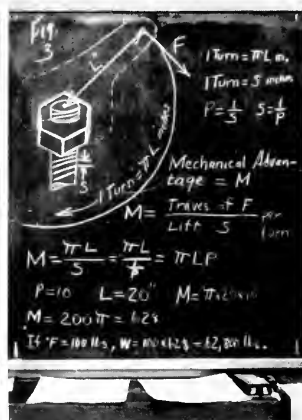 Fig. 3
L
F
S
1 Turn = πL inches
1 Turn = πL in.
1 Turn = S inches
P = 1/S S = 1/P
Mechanical Advan-
tage = M
M = Travel of F / Lift S per Turn
M = πL/S = πL/(1/P) = πLP
P=10 L=20" M=π×20×10
M = 200π = 628
If F=100 lbs, W=100×628=62,800 lbs.